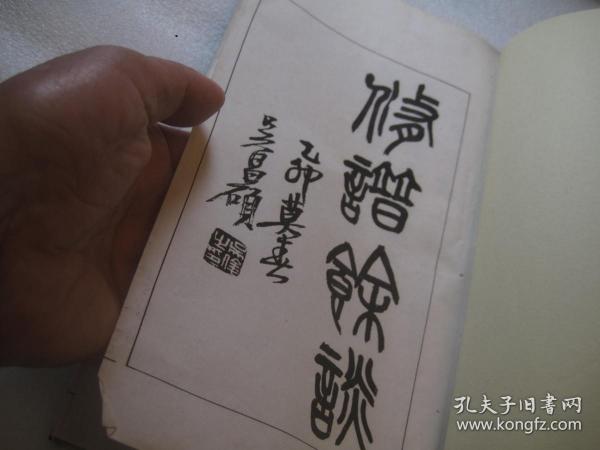 修譜餘談
乙卯莫春
吳昌碩
孔夫子旧书网
www.kongfz.com